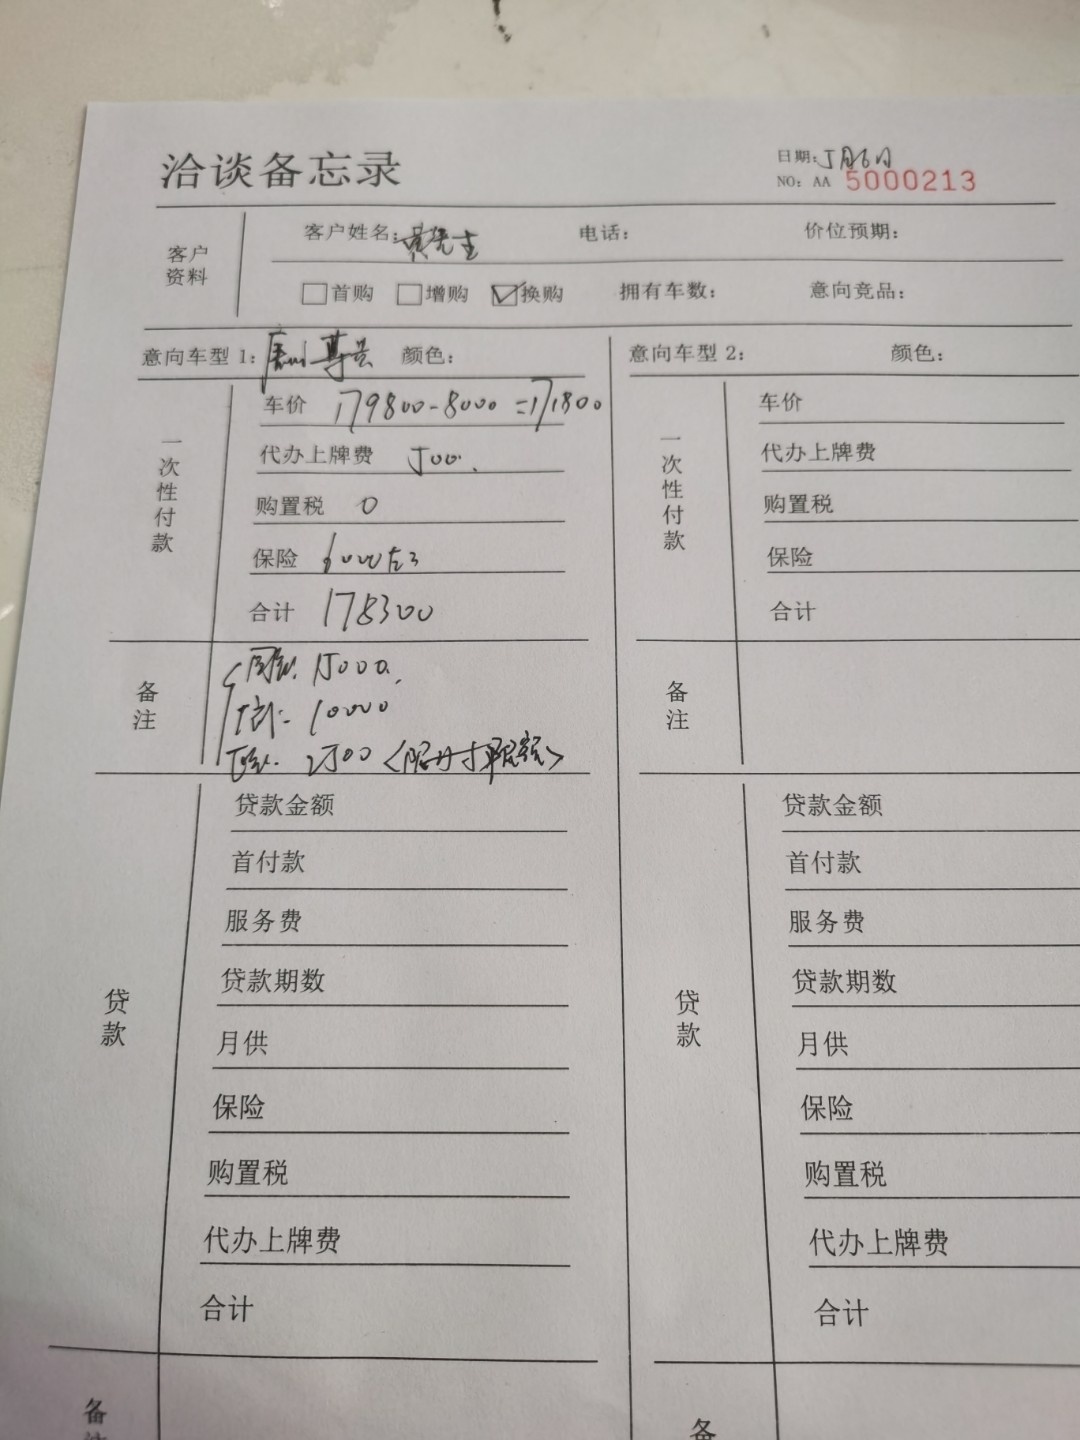 洽谈备忘录
日期：5月6日
NO：AA 5000213
客户资料
客户姓名：黄先生 电话： 价位预期：
首购 增购 换购 拥有车数： 意向竞品：
意向车型 1： 尊贵 颜色： 意向车型 2： 颜色：
一次性付款
车价 179800-8000=171800
代办上牌费 500.
购置税 0
保险 6000左右
合计 178300
一次性付款
车价
代办上牌费
购置税
保险
合计
备注
国补. 15000.
10000
2500
备注
贷款
贷款金额
首付款
服务费
贷款期数
月供
保险
购置税
代办上牌费
合计
贷款
贷款金额
首付款
服务费
贷款期数
月供
保险
购置税
代办上牌费
合计
备注
备